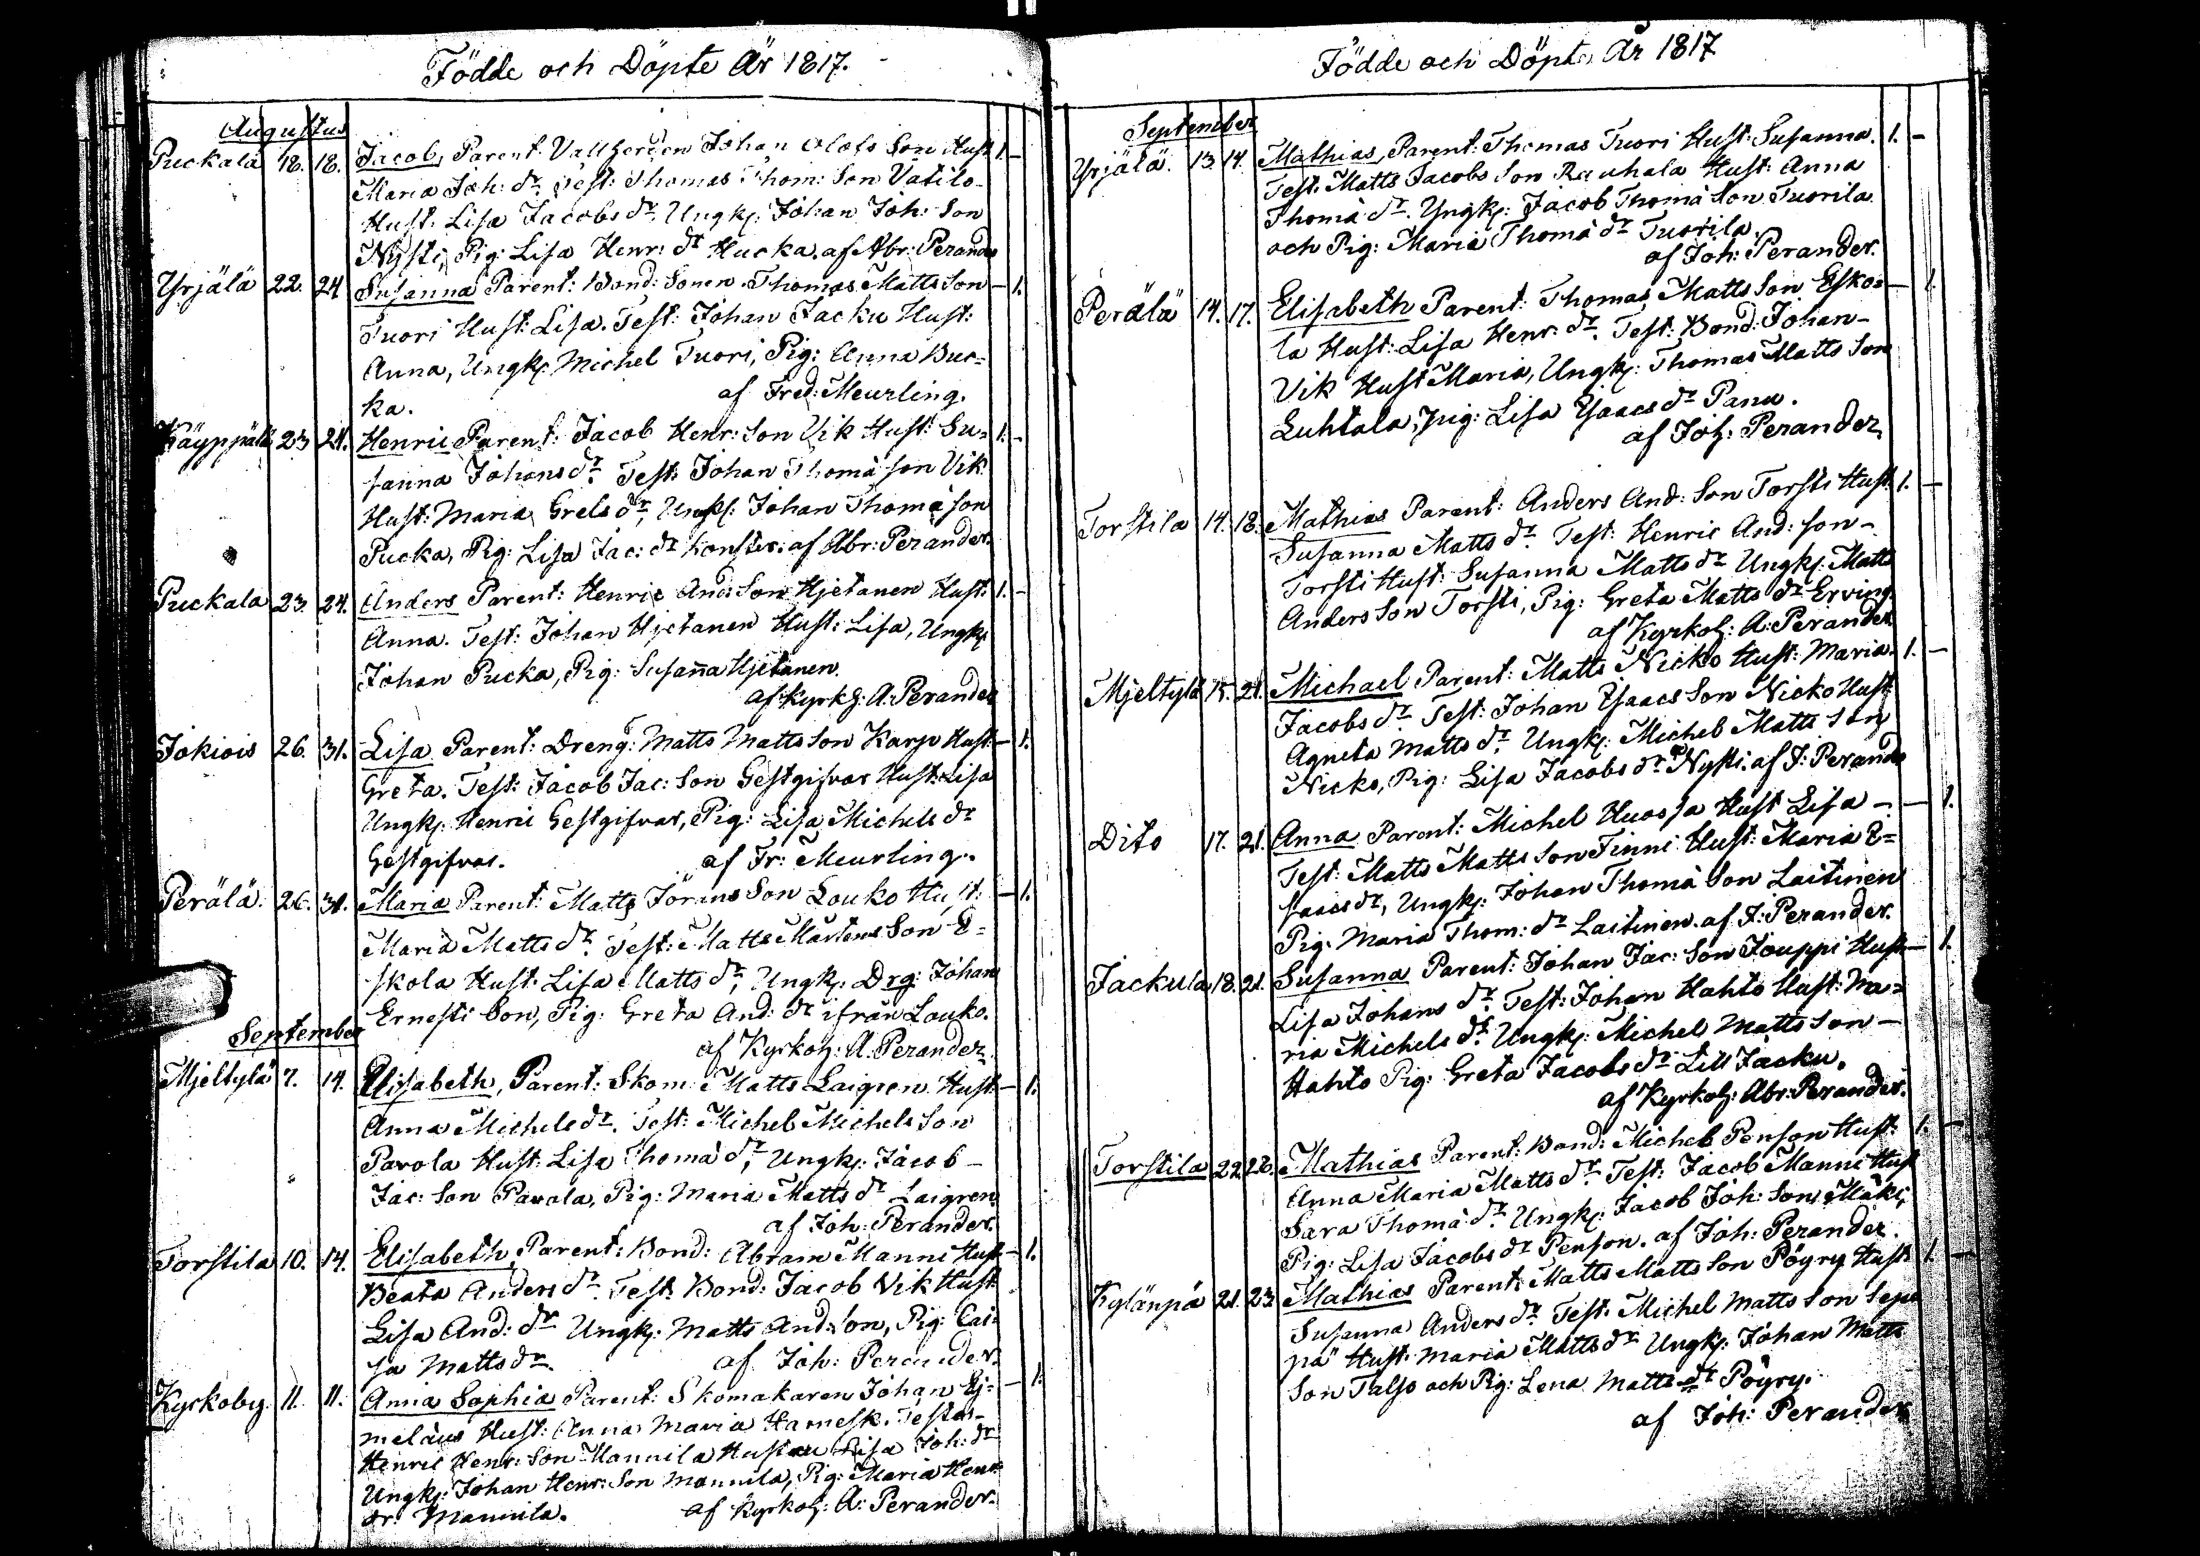 Födde och Döpte År 1817.
Augustus
Puckala 18. 18. Jacob, Parent: Vallherden Johan Olofs Son Hust: 1. –
Maria Joh: dr. Test: Thomas Thom: Son Vatilo-
Hust: Lisa Jacobs dr. Ungk: Johan Joh: Son
Nysti, Pig: Lisa Henr: dr Hucka. af Abr: Perander
Yrjälä 22. 24 Susanna Parent: Bond: Sonen Thomas Matts Son – 1.
Tuori Hust: Lisa. Test: Johan Jacku Hust:
Anna, Ungk: Michel Tuori, Pig: Anna Buc=
ka. af Fred: Meurling.
Käyppälä 23 24. Henric Parent: Jacob Henr: Son Vik Hust: Su= 1. –
sanna Johans dr. Test: Johan Thomä son Vik
Hust: Maria Grels dr, Ungk: Johan Thomä son
Pucka, Pig: Lisa Jac: dr af Abr: Perander.
Puckala 23. 24. Anders Parent: Henric And: Son Hjetanen Hust: 1. –
Anna. Test: Johan Hjetanen Hust: Lisa, Ungk:
Johan Pucka, Pig: Susaña Hjetanen.
af Kyrkh: A: Perander
Jokiois 26. 31. Lisa Parent: Dreng: Matts Matts Son Karjo Hust: – 1.
Greta. Test: Jacob Jac: Son Gestgifvar Hust: Lisa
Ungk: Henric Gestgifvar, Pig: Lisa Michels dr
Gestgifvar. af Fr: Meurling.
Perälä. 26. 31. Maria Parent: Matts Jörans Son Louko Hust: – 1.
Maria Matts dr. Test: Matts Mårtens Son E=
skola Hust: Lisa Matts dr, Ungk: Drg: Johan
Ernesti Son, Pig: Greta And: dr ifrån Louko.
af Kyrkoh: A. Perander.
September
Mjeltylä 7. 14. Elisabeth, Parent: Skom: Matts Laigren Hust: – 1.
Anna Michels dr. Test: Michel Michels Son
Pavola Hust: Lisa Thomä dr, Ungk: Jacob –
Jac: Son Pavola, Pig: Maria Matts dr Laigren
af Joh: Perander.
Torstila 10. 14. Elisabeth, Parent: Bond: Abram Manni Hust: – 1.
Beata Anders dr. Test: Bond: Jacob Vik Hust:
Lisa And: dr Ungk: Matts And: son, Pig: Cai=
sa Matts dr. af Joh: Perander.
Kyrkoby 11. 11. Anna Sophia Parent: Skomakaren Johan Ej= – 1.
meläus Hust: Anna Maria Harnesk. Testes –
Henric Henr: Son Mannila Hustru Lisa Joh: dr
Ungk: Johan Henr: Son Mannila, Pig: Maria Henr:
dr: Mannila. af Kyrkoh: A: Perander.
Födde och Döpte År 1817
September
Yrjälä. 13. 14. Mathias, Parent: Thomas Tuori Hust: Susanna. 1. –
Test: Matts Jacobs Son Rauhala Hust: Anna
Thomä dr. Yngk: Jacob Thomä Son Tuorila
och Pig: Maria Thomä dr Tuorila.
af Joh: Perander.
Perälä 14. 17. Elisabeth Parent: Thomas Matts Son Esko= – 1.
la Hust: Lisa Henr: dr. Test: Bond: Johan –
Vik Hust: Maria, Ungk: Thomas Matts Son
Luhtala, Pig: Lisa Ysaacs dr Panu.
af Joh: Perander.
Torstila 14. 18. Mathias Parent: Anders And: Son Torsti Hust: 1. –
Susanna Matts dr. Test: Henric And: son –
Torsti Hust: Susanna Matts dr Ungk: Matts
Anders Son Torsti, Pig: Greta Matts dr Erving.
af Kyrkoh: A: Perander
Mjeltylä 15. 21. Michael Parent: Matts Nicko Hust: Maria 1. –
Jacobs dr. Test: Johan Ysaacs Son Nicko Hust:
Agneta Matts dr, Ungk: Michel Matts Son
Nicko, Pig: Lisa Jacobs dr Nysti. af J: Perander
Dito 17. 21. Anna Parent: Michel Huosja Hust: Lisa – – 1.
Test: Matts Matts Son Finni Hust: Maria E=
saacs dr, Ungk: Johan Thomä Son Laitinen
Pig: Maria Thom: dr Laitinen. af J: Perander.
Jackula 18. 21. Susanna Parent: Johan Jac: Son Jouppi Hust: – 1.
Lisa Johans dr. Test: Johan Hahto Hust: Ma=
ria Michels dr. Ungk: Michel Matts Son –
Hahto Pig: Greta Jacobs dr Lill Jacku.
af Kyrkoh: Abr: Perander.
Torstila 22. Mathias Parent: Bond: Michel Penson Hust: 1. –
Anna Maria Matts dr. Test: Jacob Manni Hust:
Sara Thomä dr. Ungk: Jacob Joh: Son Mäki,
Pig: Lisa Jacobs dr Penson. af Joh: Perander.
Kylänpä 21. 23. Mathias Parent: Matts Matts Son Pöyry Hust: 1. –
Susanna Anders dr Test: Michel Matts Son Sep=
pä Hust: Maria Matts dr Ungk: Johan Matts
Son Talso och Pig: Lena Matts dr Pöyry.
af Joh: Perander